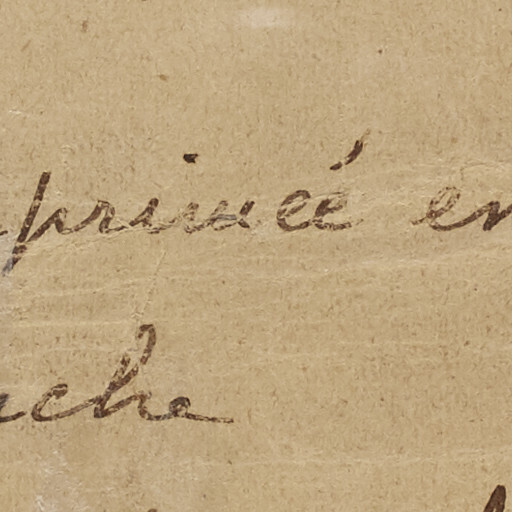 primée en
ache